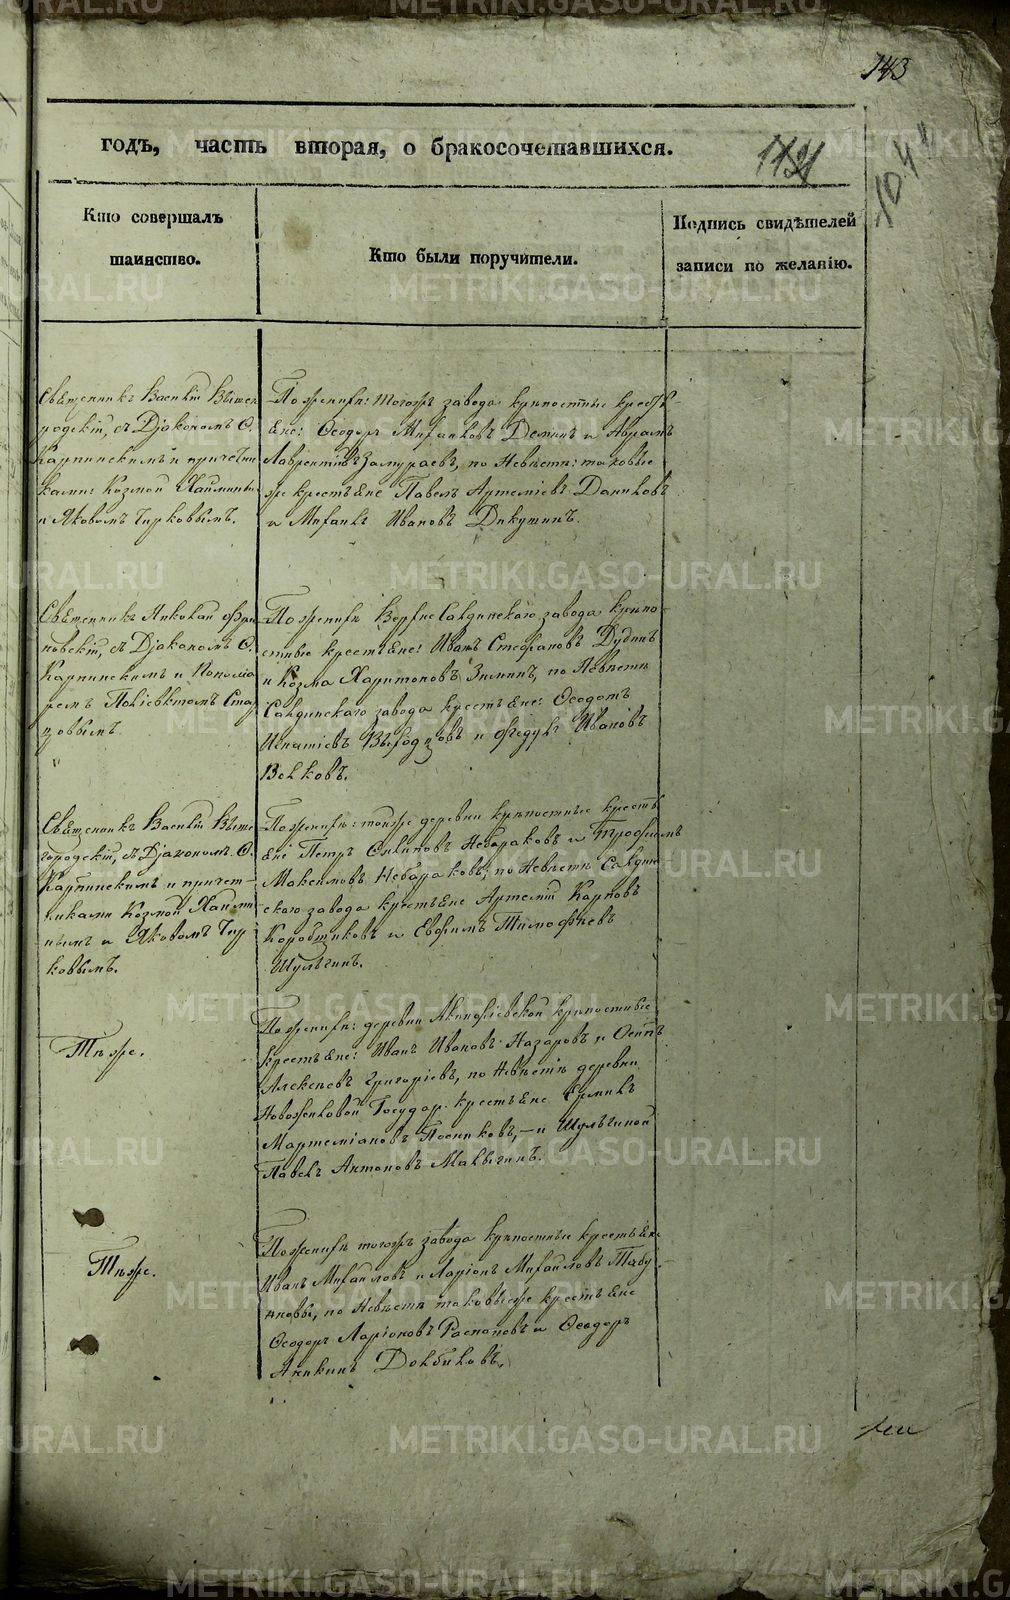 143
годъ, часть вторая, о бракосочетавшихся.
1044
Кто совершалъ
таинство.
Кто были поручители.
Подпись свидѣтелей
записи по желанію.
Священникъ Василій Вышего
родскій, съ Діакономъ С.
Карпинскимъ и причетни
ками: Козмой Хайминым
и Яковомъ Чирковымъ.
По женихѣ: тогожъ завода крѣпостные кресть
яне: Ѳеодоръ Михаиловъ Деминъ и Аврамъ
Лаврентіевъ Замураевъ, по невѣстѣ: таковые
же крестьяне Павелъ Артеміевъ Даниловъ
и Михаилъ Ивановъ Дикушинъ.
Священникъ Николай
новскій, съ Діакономъ С.
Карпинскимъ и Понома
ремъ Поліевктомъ Стар
цовымъ.
По женихѣ Верхнесалдинскаго завода крѣпо
стные крестьяне: Иванъ Стефановъ Дудинъ
и Козма Харитоновъ Зиминъ, по Невѣстѣ
Салдинскаго завода крестьяне: Ѳеодотъ
Игнатіевъ Выходцовъ и Ѳедулъ Ивановъ
Волковъ.
Священникъ Василій Выше
городскій, съ Діакономъ С.
Карпинскимъ и причет-
никами Козмой Хайми
нымъ и Яковомъ Чир
ковымъ.
По женихѣ: тойже деревни крѣпостные кресть
яне Петръ Филиповъ Небараковъ и Трофимъ
Максимовъ Небараковъ, по Невѣстѣ Салдин
скаго завода крестьяне Артемій Карповъ
Коробщиковъ и Евфимъ Тимофѣевъ
Шульгинъ.
Тѣже.
По женихѣ: деревни Акинфіевской крѣпостные
крестьяне: Иванъ Ивановъ Назаровъ и Осипъ
Алексѣевъ Григоріевъ, по Невѣстѣ деревни
Новожиловой Государ. крестьяне
Мартеміановъ Постниковъ,-и Шульгиной
Павелъ Антоновъ Малыгинъ.
Тѣже.
По женихѣ тогожъ завода крѣпостные крестьяне
Иванъ Михаиловъ и Ларіонъ Михаиловъ Табу
новы, по Невѣстѣ таковыеже крестьяне
Ѳеодоръ Ларіоновъ Распоповъ и Ѳеодоръ
Аникинъ Долбиловъ.
METRIKI.GASO-URAL.RU